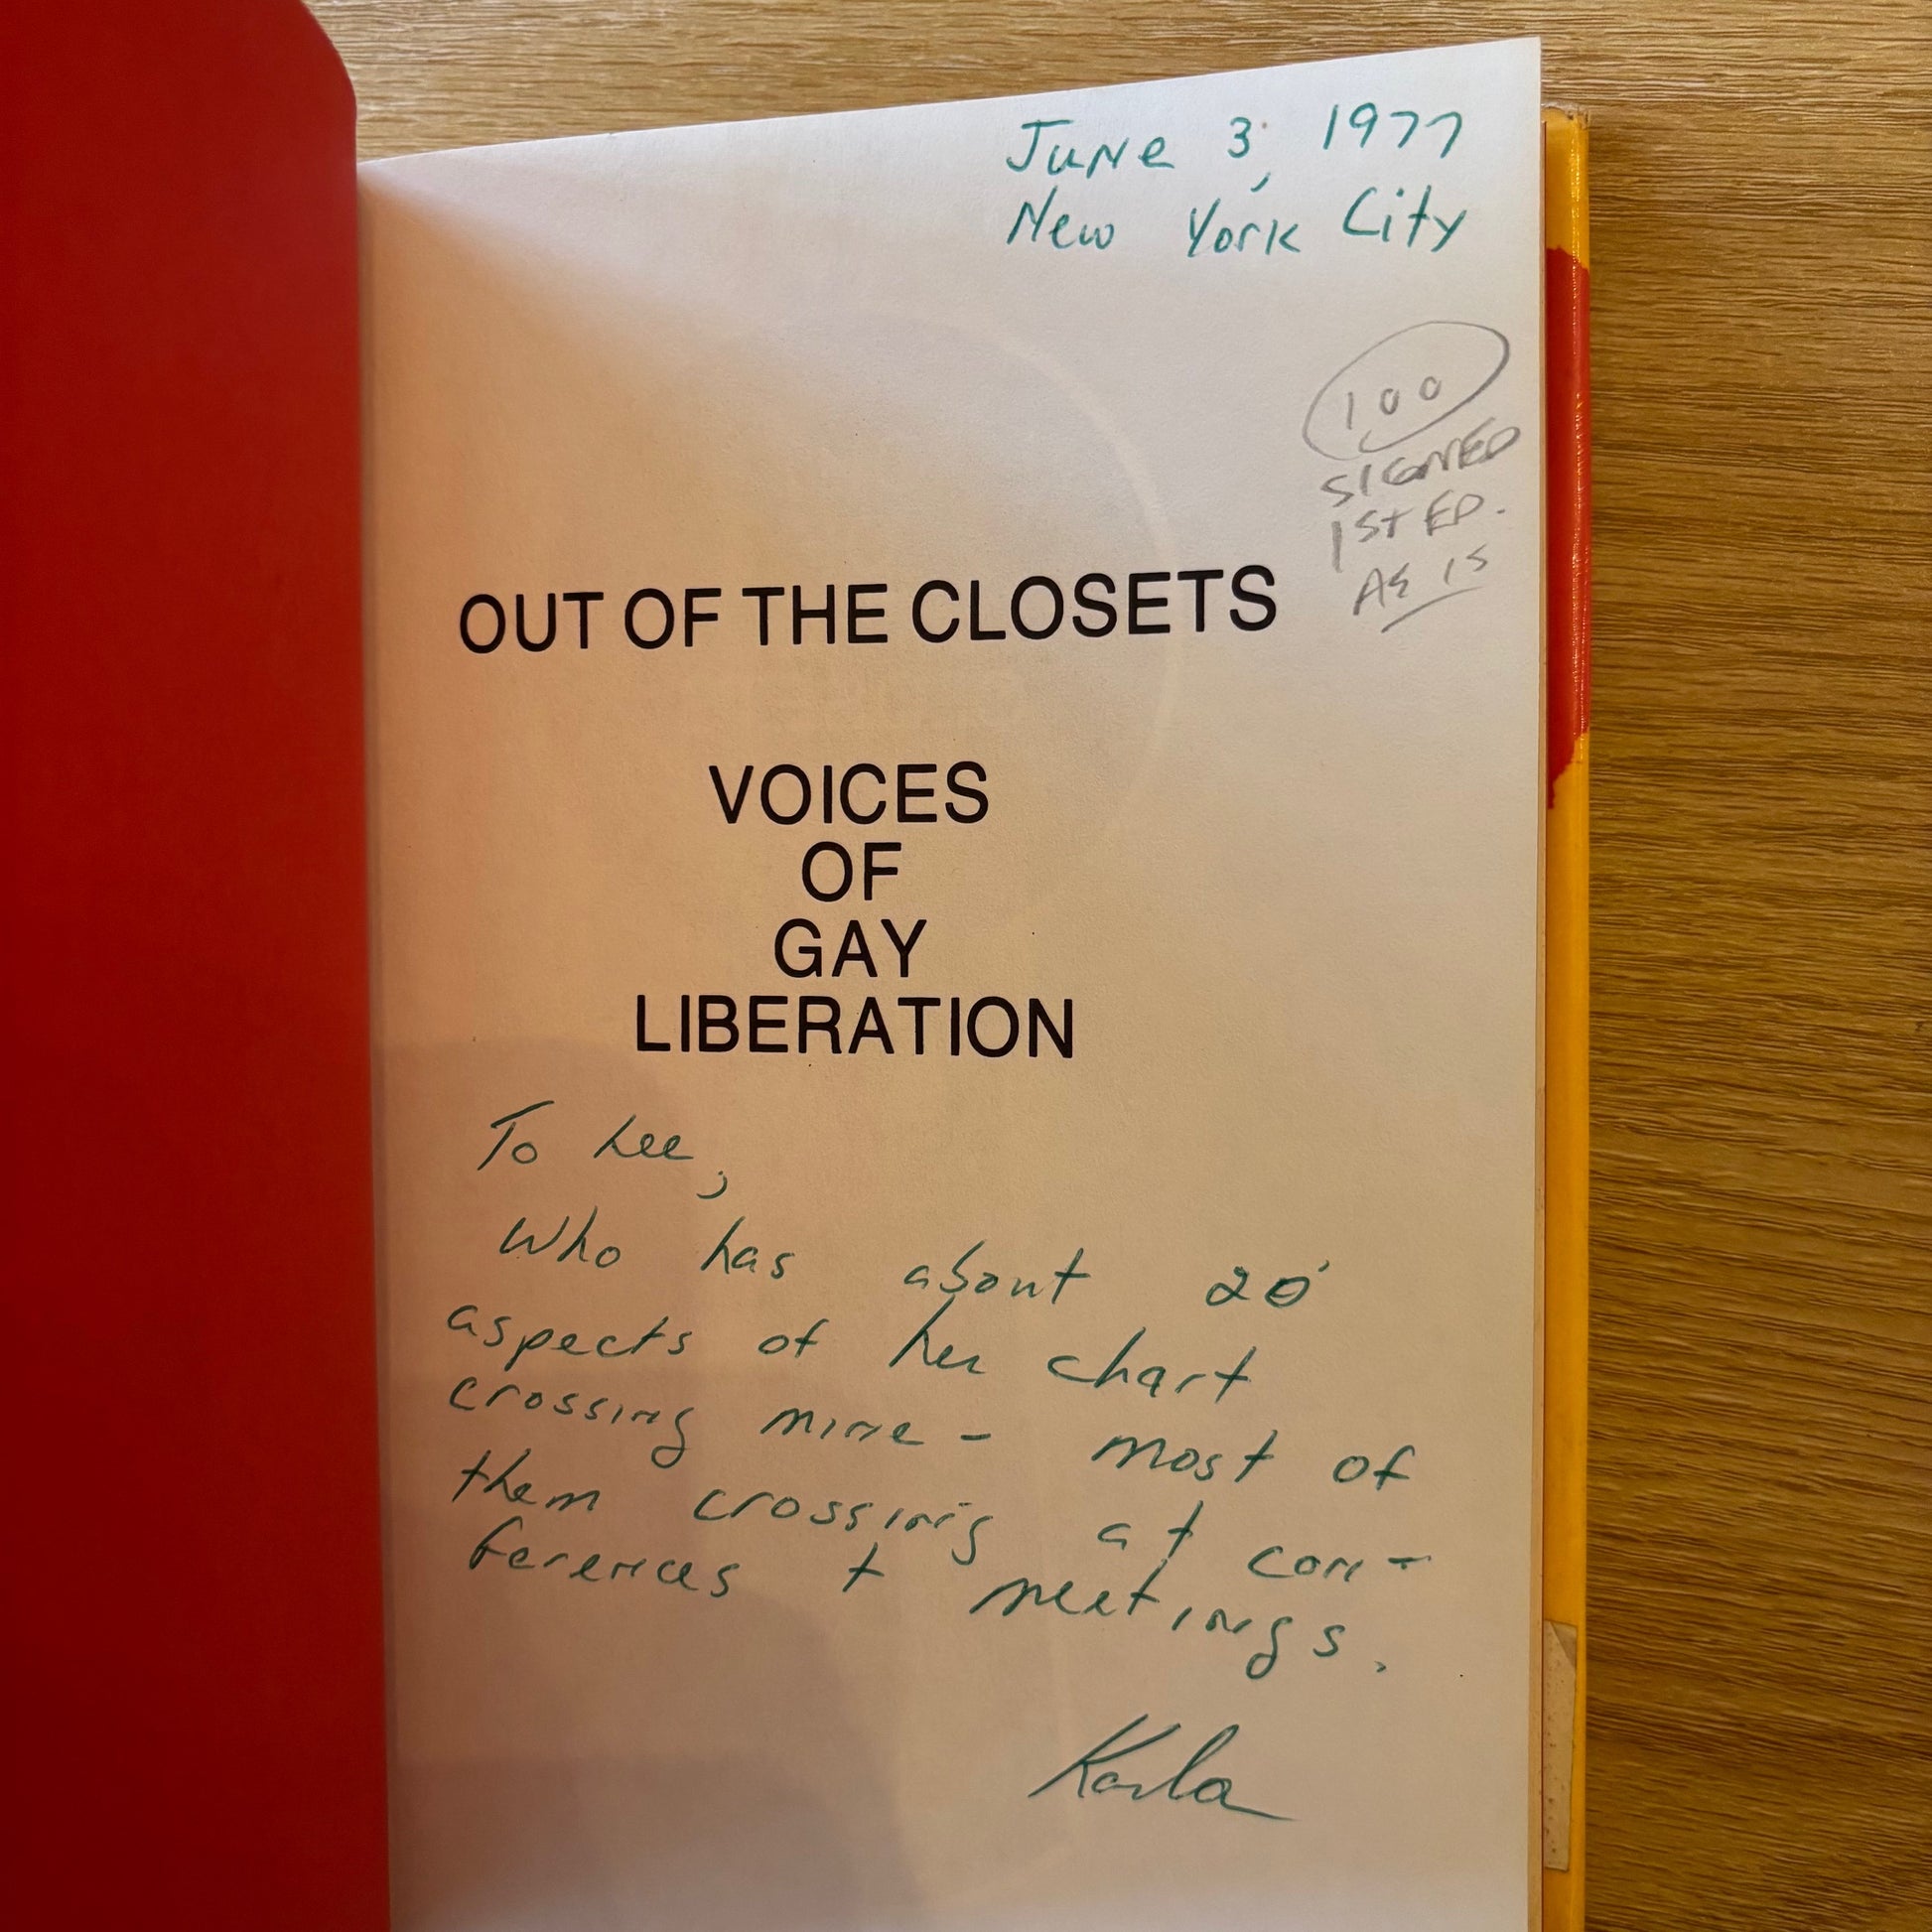 June 3, 1977
New York City
100
SIGNED
1ST ED.
AS IS
OUT OF THE CLOSETS
VOICES
OF
GAY
LIBERATION
To Lee,
Who has about 20
aspects of her chart
crossing mine - most of
them crossing at con-
ferences + meetings.
Karla